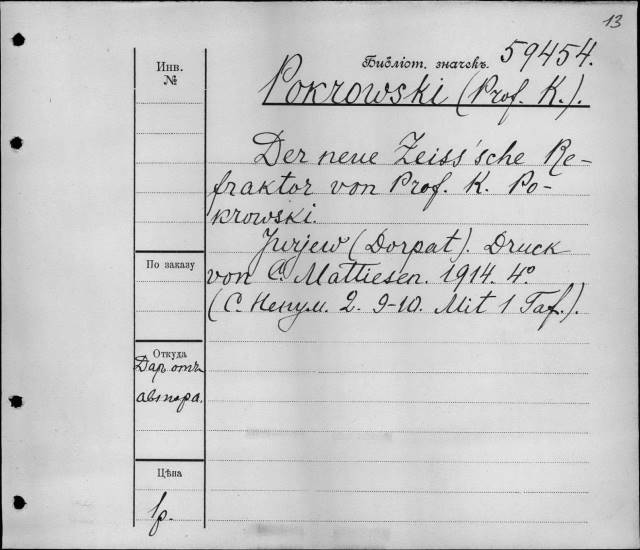 13
Библіот. значекъ. 59454.
Инв.
№
Pokrowski (Prof. K.).
Der neue Zeiss'sche Re-
fraktor von Prof. K. Po-
krowski.
Jurjew (Dorpat). Druck
По заказу
von C. Mattiesen. 1914. 4°
(С. Ненум. 2. 9-10. Mit 1 Taf.).
Откуда
Дар отъ
автора.
Цѣна
1р.